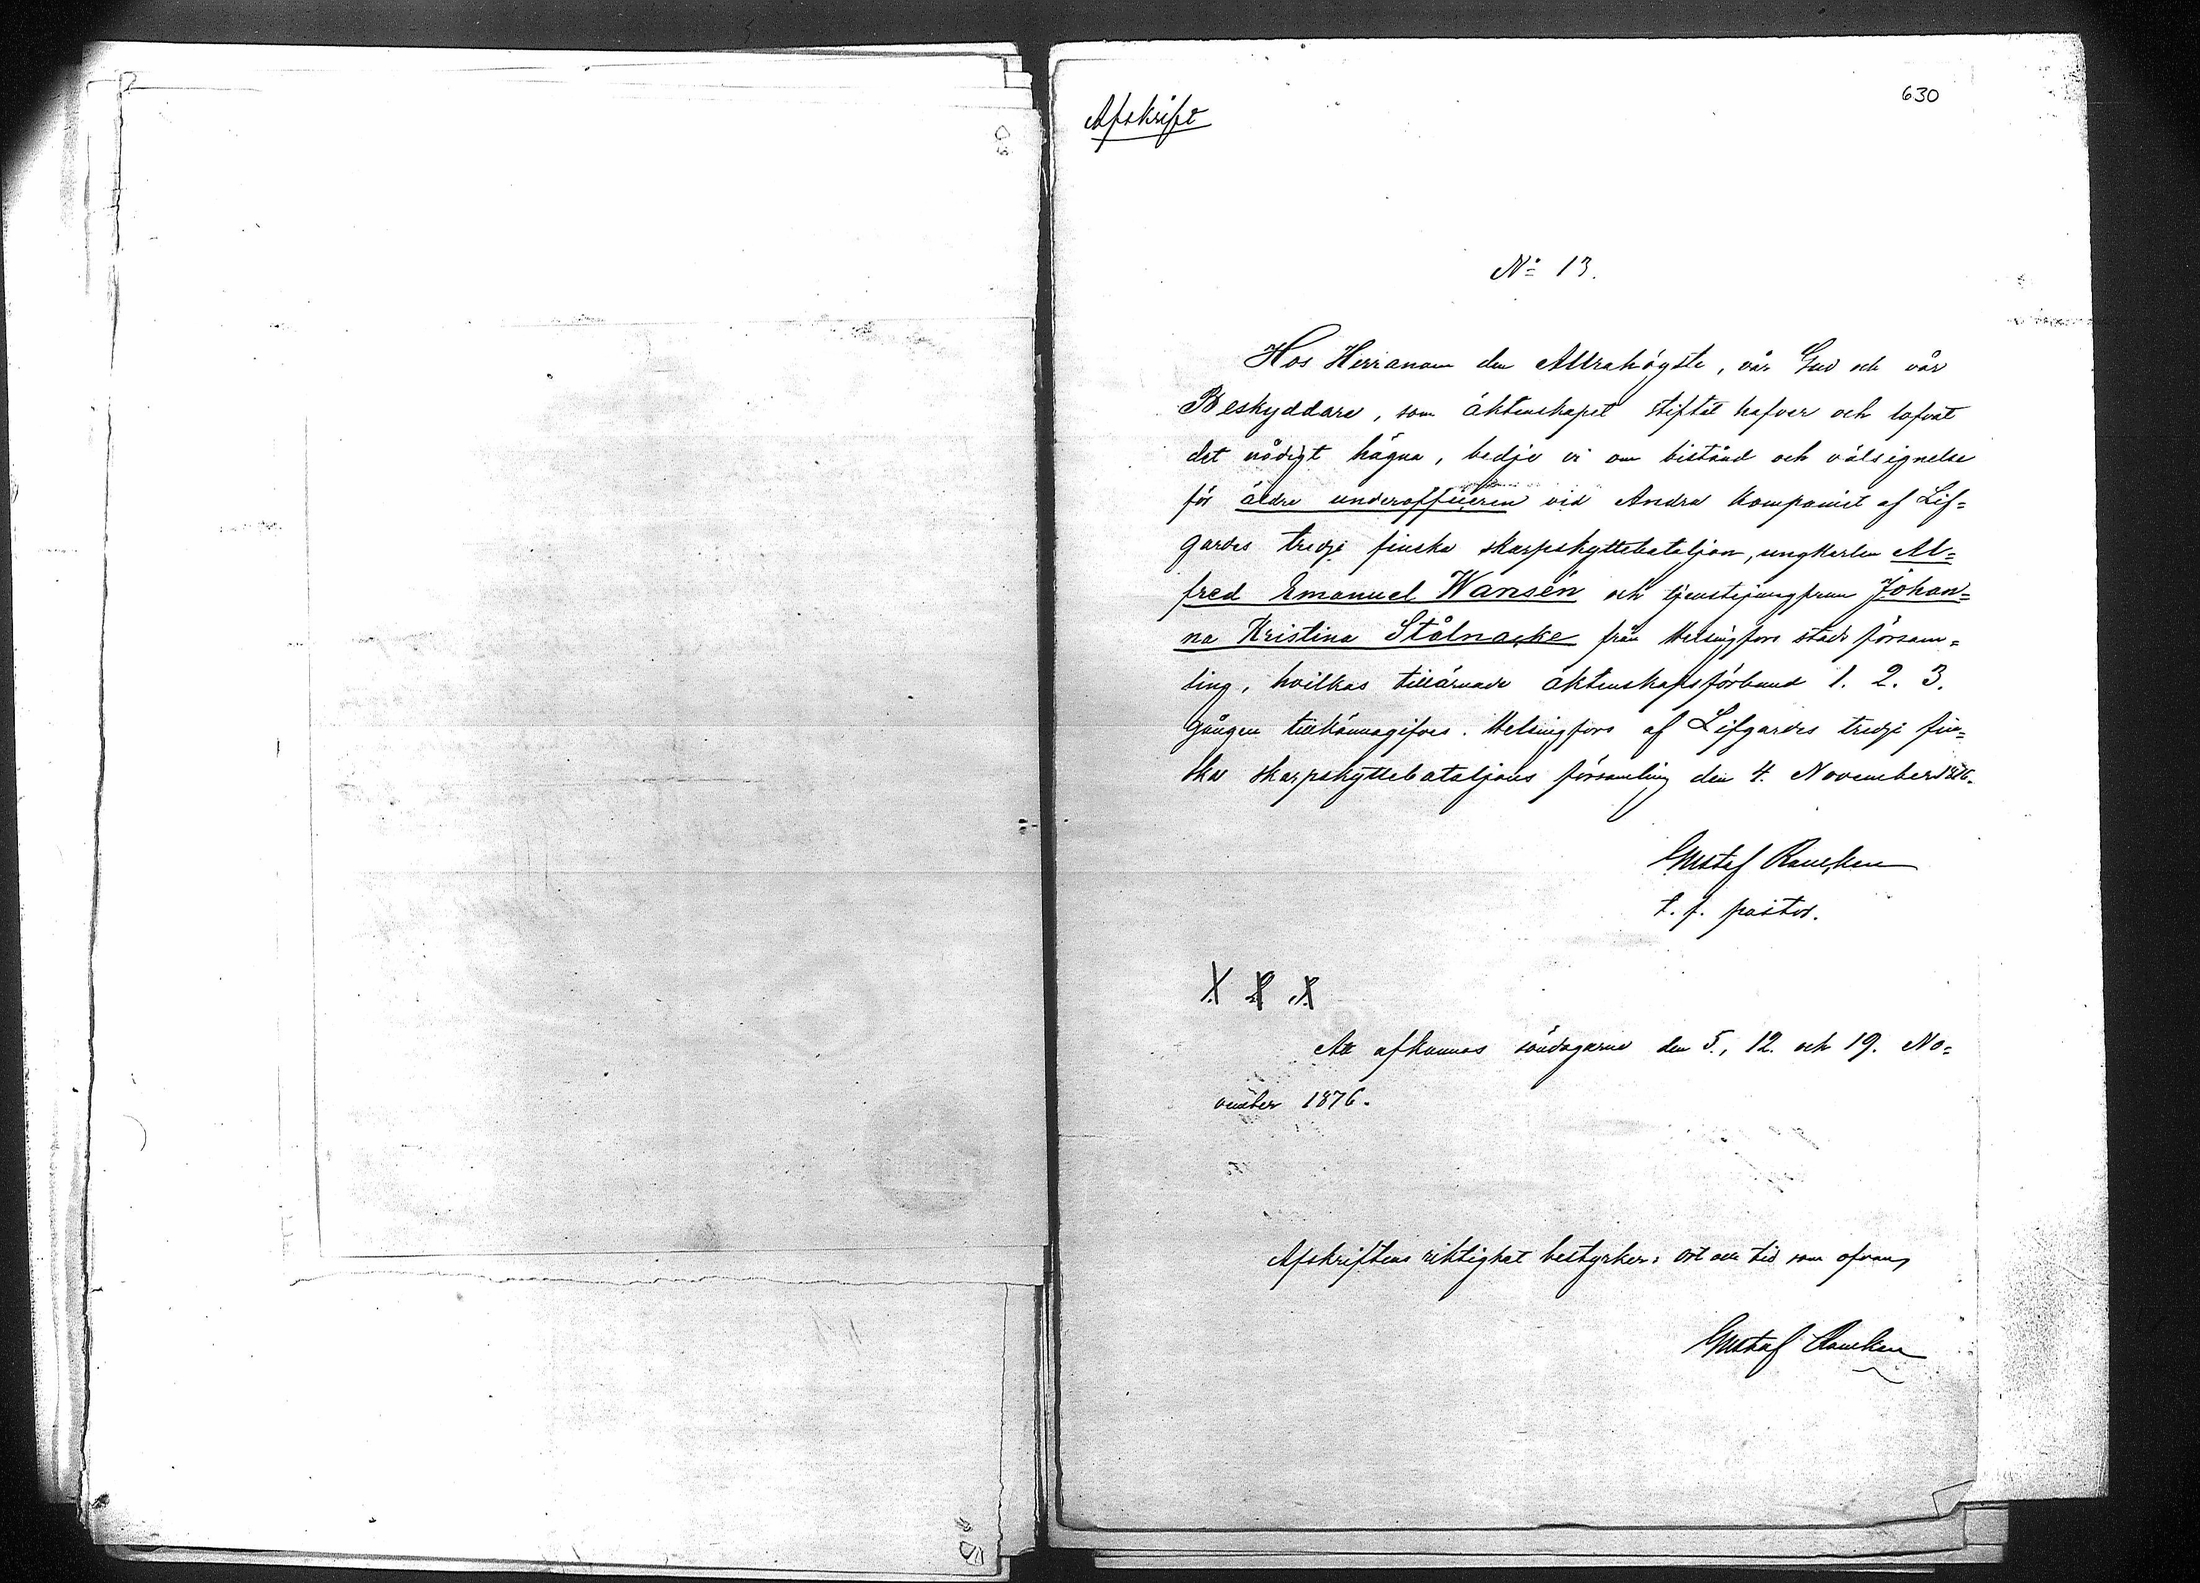 630
Afskrift
No 13.
Hos Herranom den Allrahögste, vår Gud och vår
Beskyddare, som äktenskapet stiftat hafver och lofvat
det nådigt hägna, bedje vi om bistånd och välsignelse
för äldre underofficeren vid Andra kompaniet af Lif=
gardes tredje finska skarpskyttebataljon, ungkarlen Al=
fred Emanuel Wansén och tjenstejungfrun Johan=
na Kristina Stålnacke från Helsingfors stads försam=
ling, hvilkas tillärnade äktenskapsförbund 1. 2. 3.
gången tillkännagifves. Helsingfors af Lifgardes tredje fin=
ska skarpskyttebataljons församling den 4. November 1876.
Gustaf Rancken
t. f. pastor.
X X X
Att afkunnas söndagarne den 5., 12. och 19. No=
vember 1876.
Afskriftens riktighet bestyrker; ort och tid som ofvan,
Gustaf Rancken